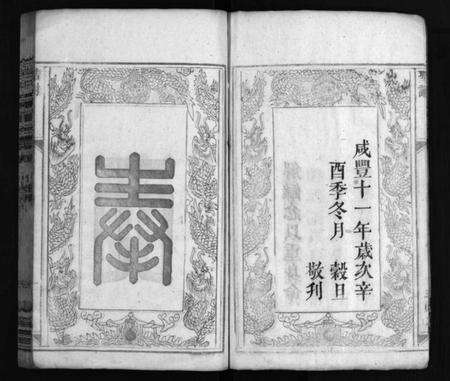 咸豐十一年歲次辛
酉季冬月　穀旦
敬刊
奉